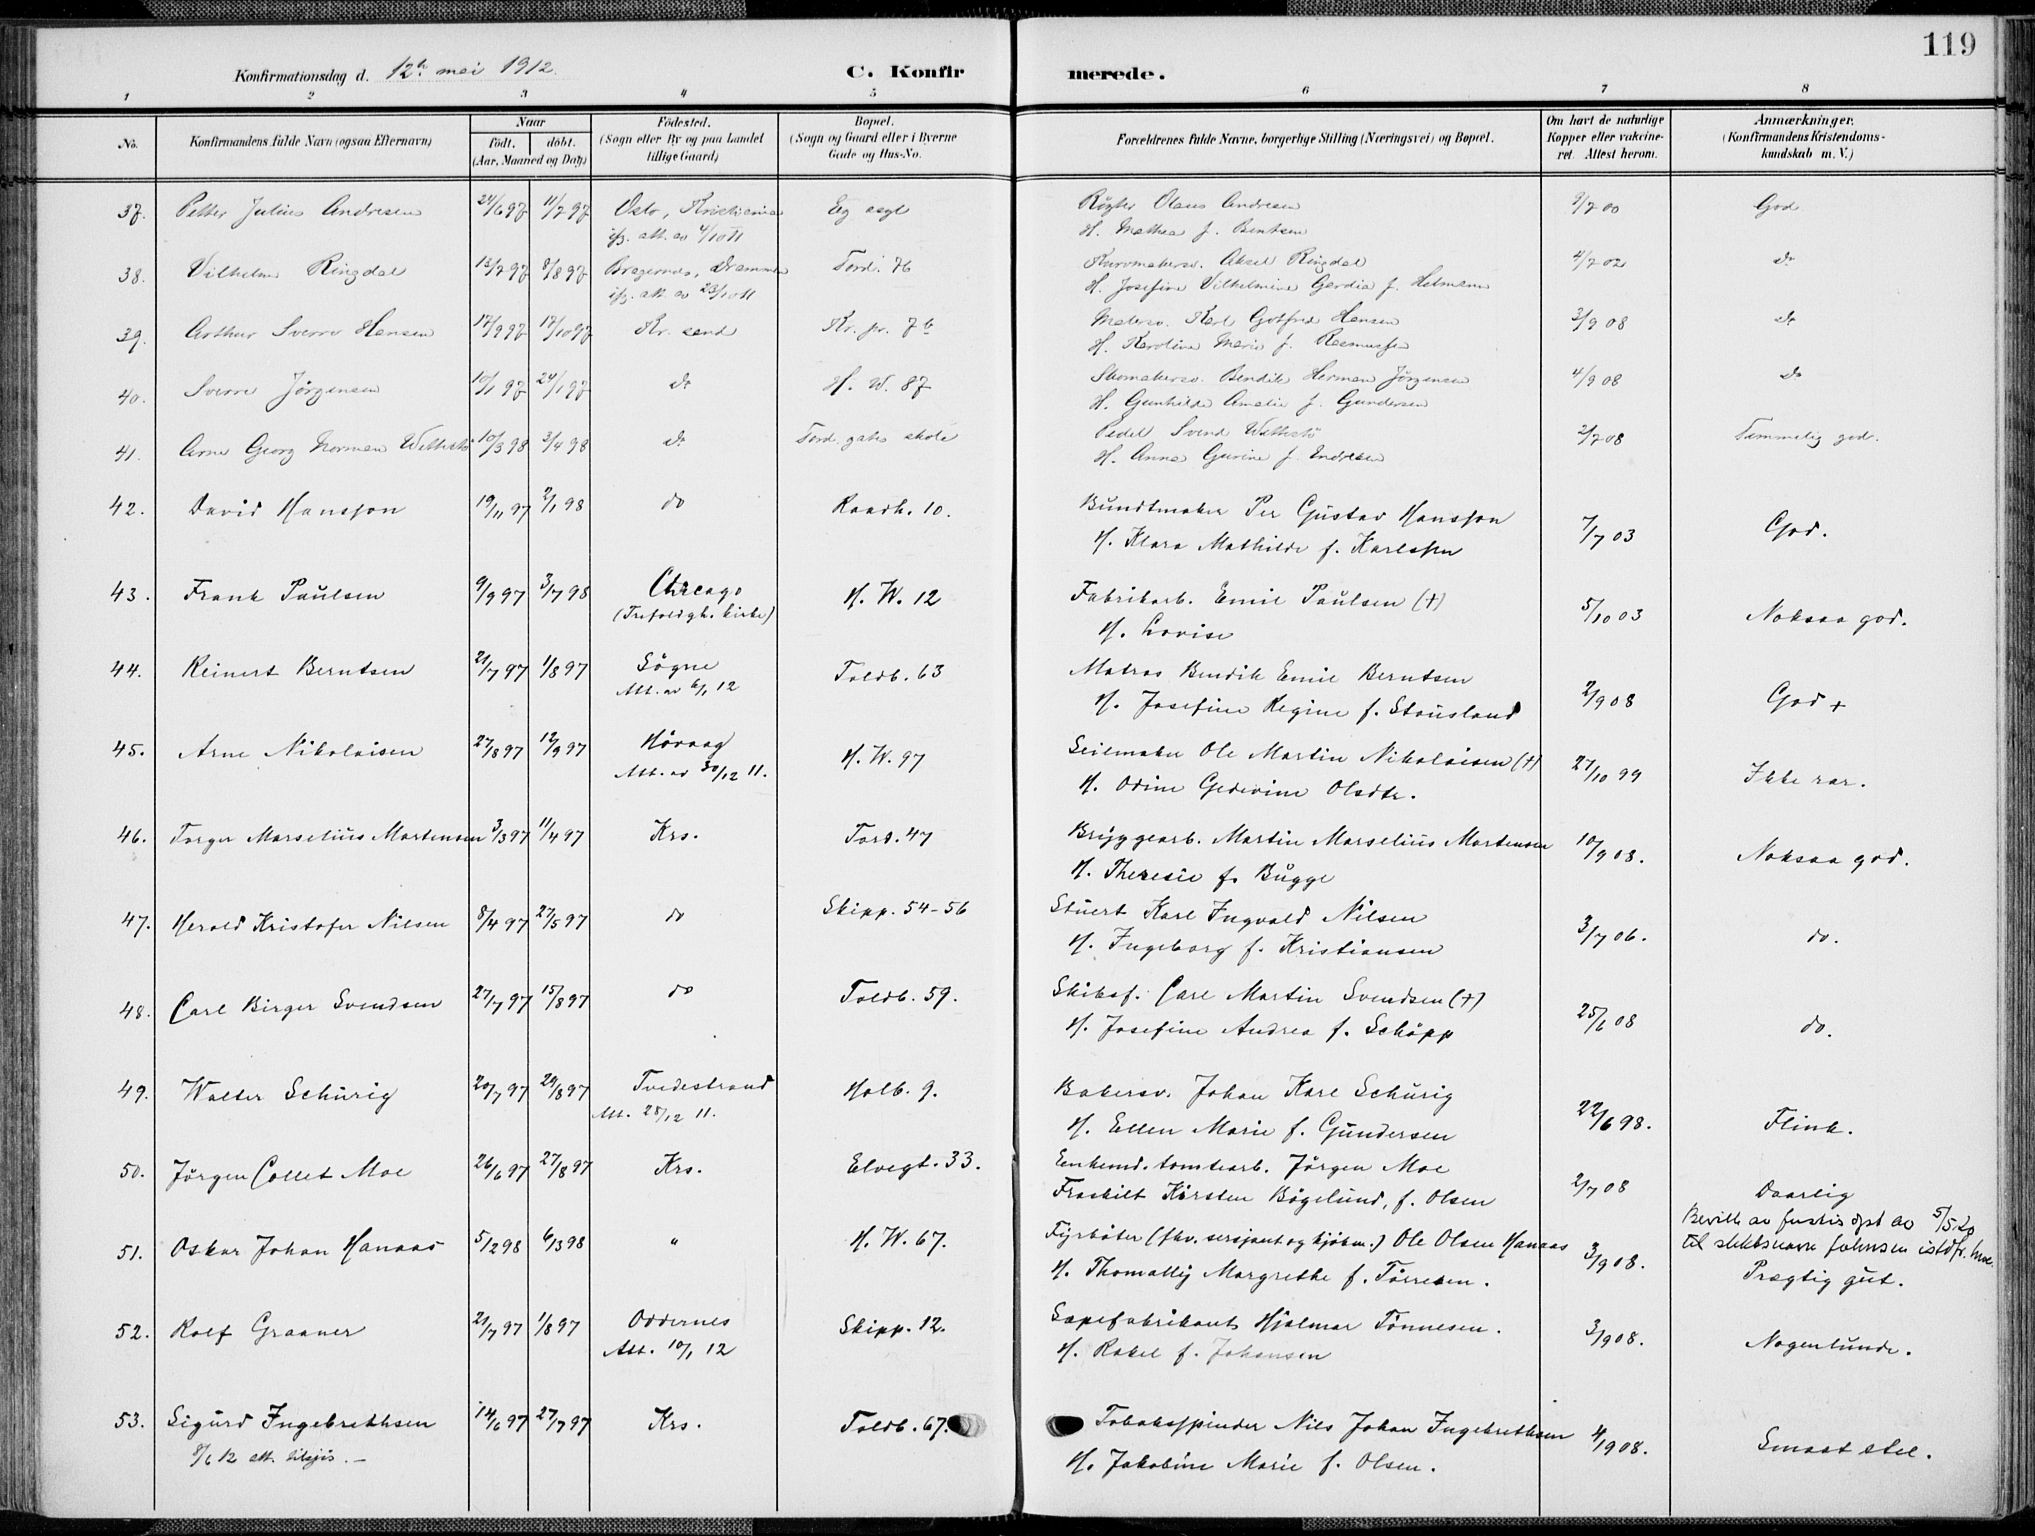 119
Konfirmationsdag d. 12te mei 1912. C. Konfirmerede.
1 2 3 4 5 6 7 8
No. Konfirmandens fulde Navn (ogsaa Efternavn) Naar født. døbt. (Aar, Maaned og Dag) Fødested. (Sogn eller By og paa Landet tillige Gaard) Bopæl. (Sogn og Gaard eller i Byerne Gade og Hus-No. Forældrenes fulde Navne, borgerlige Stilling (Næringsvei) og Bopæl. Om havt de naturlige Kopper eller vakcineret. Attest herom. Anmærkninger. (Konfirmandens Kristendomskundskab m. V.)
37. Petter Julius Andresen 24/6 97 11/7 97 Oslo, Kristiania Eg asyl Røgter Olaus Andresen 9/7 00 God
ifg. att. av 4/10 11 H. Mathea f. Bentsen
38. Vilhelm Ringdal 13/7 97 8/8 97 Bragernes, Drammen Tord. 76 Kurvmakersv. Aksel Ringdal 4/7 02 do
ifg. att. av 23/10 11 H. Josefine Vilhelmine Gerdia f. Helmann
39. Arthur Sverre Hansen 17/9 97 17/10 97 Kr. sand Kr. pr. 7b Malersv. Karl Gotfred Hansen 3/9 08 do
H. Karoline Marie f. Rasmussen
40. Sverre Jørgensen 10/1 97 24/1 97 do H. W. 87 Skomakersv. Bendik Herman Jørgensen 4/9 08 do
H. Gunhilde Amalie f. Gundersen
41. Arne Georg Norman Wettestø 10/3 98 3/4 98 do Tord. gates skole Pedel Svend Wettestø 2/7 08 Temmelig god.
H. Anna Gurine f. Endresen
42. David Hansson 19/11 97 2/1 98 do Raadh. 10. Bundtmaker Per Gustav Hansson 7/7 03 God.
H. Klara Mathilde f. Karlsson
43. Frank Paulsen 9/9 97 3/7 98 Chicago H. W. 12 Fabrikarb. Emil Paulsen (+) 5/10 03 Noksaa god.
(Trefoldigh. kirke) H. Lovise
44. Reinert Berntsen 21/7 97 1/8 97 Søgne Toldb. 63 Matros Bendik Emil Berntsen 2/9 08 God +
Att. av 6/1 12 H. Josefine Regine f. Stousland
45. Arne Nikolaisen 27/8 97 12/9 97 Høvaag H. W. 97 Seilmaker Ole Martin Nikolaisen (+) 27/10 99 Ikke rar.
Att. av 30/12 11. H. Odine Gedivine Olsdtr.
46. Torger Marselius Martensen 3/3 97 11/4 97 Krs. Tord. 47 Bryggearb. Martin Marselius Martensen 10/9 08. Noksaa god.
H. Theresie f. Bugge
47. Harald Kristofer Nilsen 8/4 97 27/5 97 do Skipp. 54-56 Stuert Karl Ingvald Nilsen 3/7 06. do.
H. Ingeborg f. Kristiansen
48. Carl Birger Svendsen 27/7 97 15/8 97 do Toldb. 59. Skibsf. Carl Martin Svendsen (+) 25/6 08 do.
H. Josefine Andrea f. Schøpp
49. Walter Schurig 20/7 97 29/8 97 Tvedestrand Holb. 9. Bakersv. Johan Karl Schurig 22/6 98. Flink.
Att. 28/12 11. H. Ellen Marie f. Gundersen
50. Jørgen Collet Moe 26/6 97 27/8 97 Krs. Elvegt. 33. Enkemd. tomtearb. Jørgen Moe 2/7 08 Daarlig
Fraskilt Kirsten Bøgelund, f. Olsen Bevill. av justis dpt av 5/5 20
til slektsnavn Johnsen istdf. Moe.
51. Oskar Johan Hanaas 5/2 98 6/3 98 " H. W. 67. Fyrbøter (fhv. sersjant og kjøbm.) Ole Olsen Hanaas 3/9 08. Prægtig gut.
H. Thomally Margrethe f. Tørresen.
52. Rolf Graaner 21/7 97 1/8 97 Oddernes Skipp. 12. Sæpefabrikant Hjalmar Tønnesen. 3/9 08. Nogenlunde.
Att. 10/1 12 H. Rakel f. Johansen
53. Sigurd Ingebrethsen 14/6 97 27/7 97 Krs. Toldb. 67. Tobaksspinder Nils Johan Ingebrethsen 4/9 08. Smaat stel.
8/6 12 att. utsjis. — H. Jakobine Marie f. Olsen.